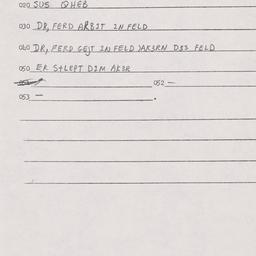 020 SUS QHEB
030 DR, FERD ARBIT IN FELD
040 DR, FERD GEJT IN FELD JAKERN DIS FELD
050 ER STLEPT DIM AKER
052 —
053 — .